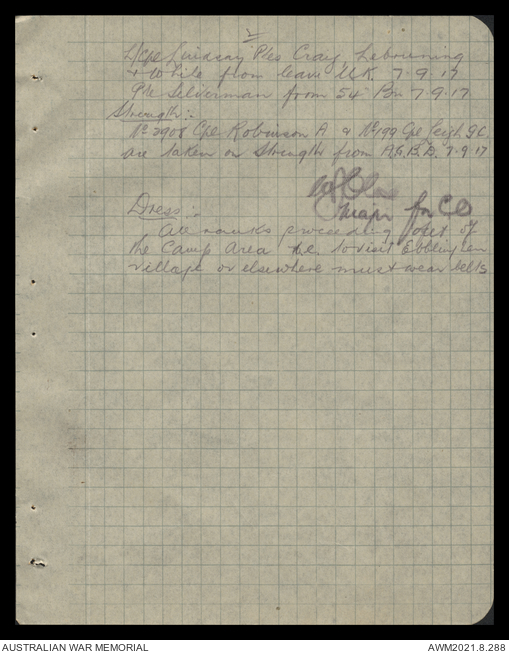 2
L/Cpe Lindsay Ptes Craig, Lebrunning
+ White from leave U.K. 7-9-17
Pte Silverman from 54 Bn 7.9.17
Strength:-
No 2908 Cpl Robinson A & No 199 Cpl Leigh
are taken on Strength from 7.9.17
Major for CO
Dress:-
All ranks proceeding out of
the Camp Area to visit Ebblinghem
village or elsewhere must wear belts
AUSTRALIAN WAR MEMORIAL
AWM2021.8.288